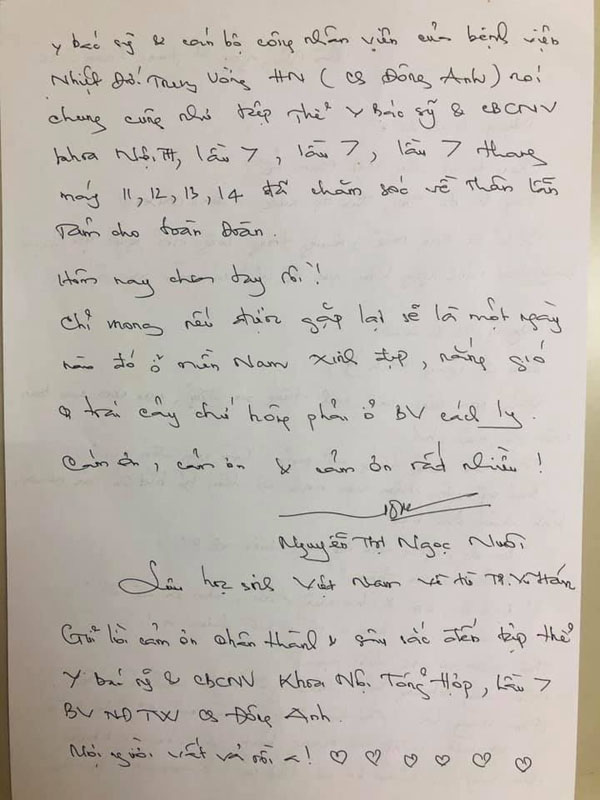 y bác sỹ & cán bộ công nhân viên của bệnh viện
Nhiệt Đới Trung Ương HN (CS Đông Anh) nói
chung cũng như tập thể Y Bác sỹ & CBCNV
khoa Nội TH, lầu 7, lầu 7, lầu 7 thang
máy 11, 12, 13, 14 đã chăm sóc về Thân lẫn
Tâm cho toàn Đoàn.
Hôm nay chia tay rồi!
Chỉ mong nếu được gặp lại sẽ là một ngày
nào đó ở miền Nam xinh đẹp, nắng gió
& trái cây chứ hông phải ở BV cách ly.
Cảm ơn, cảm ơn & cảm ơn rất nhiều!
Nguyễn Thị Ngọc Nuôi
Lưu học sinh Việt Nam về từ TP. Vũ Hán
Gửi lời cảm ơn chân thành & sâu sắc đến tập thể
Y bác sỹ & CBCNV Khoa Nội Tổng Hợp, lầu 7
BV NĐTW CS Đông Anh.
Mọi người vất vả rồi ạ! ♡ ♡ ♡ ♡ ♡ ♡